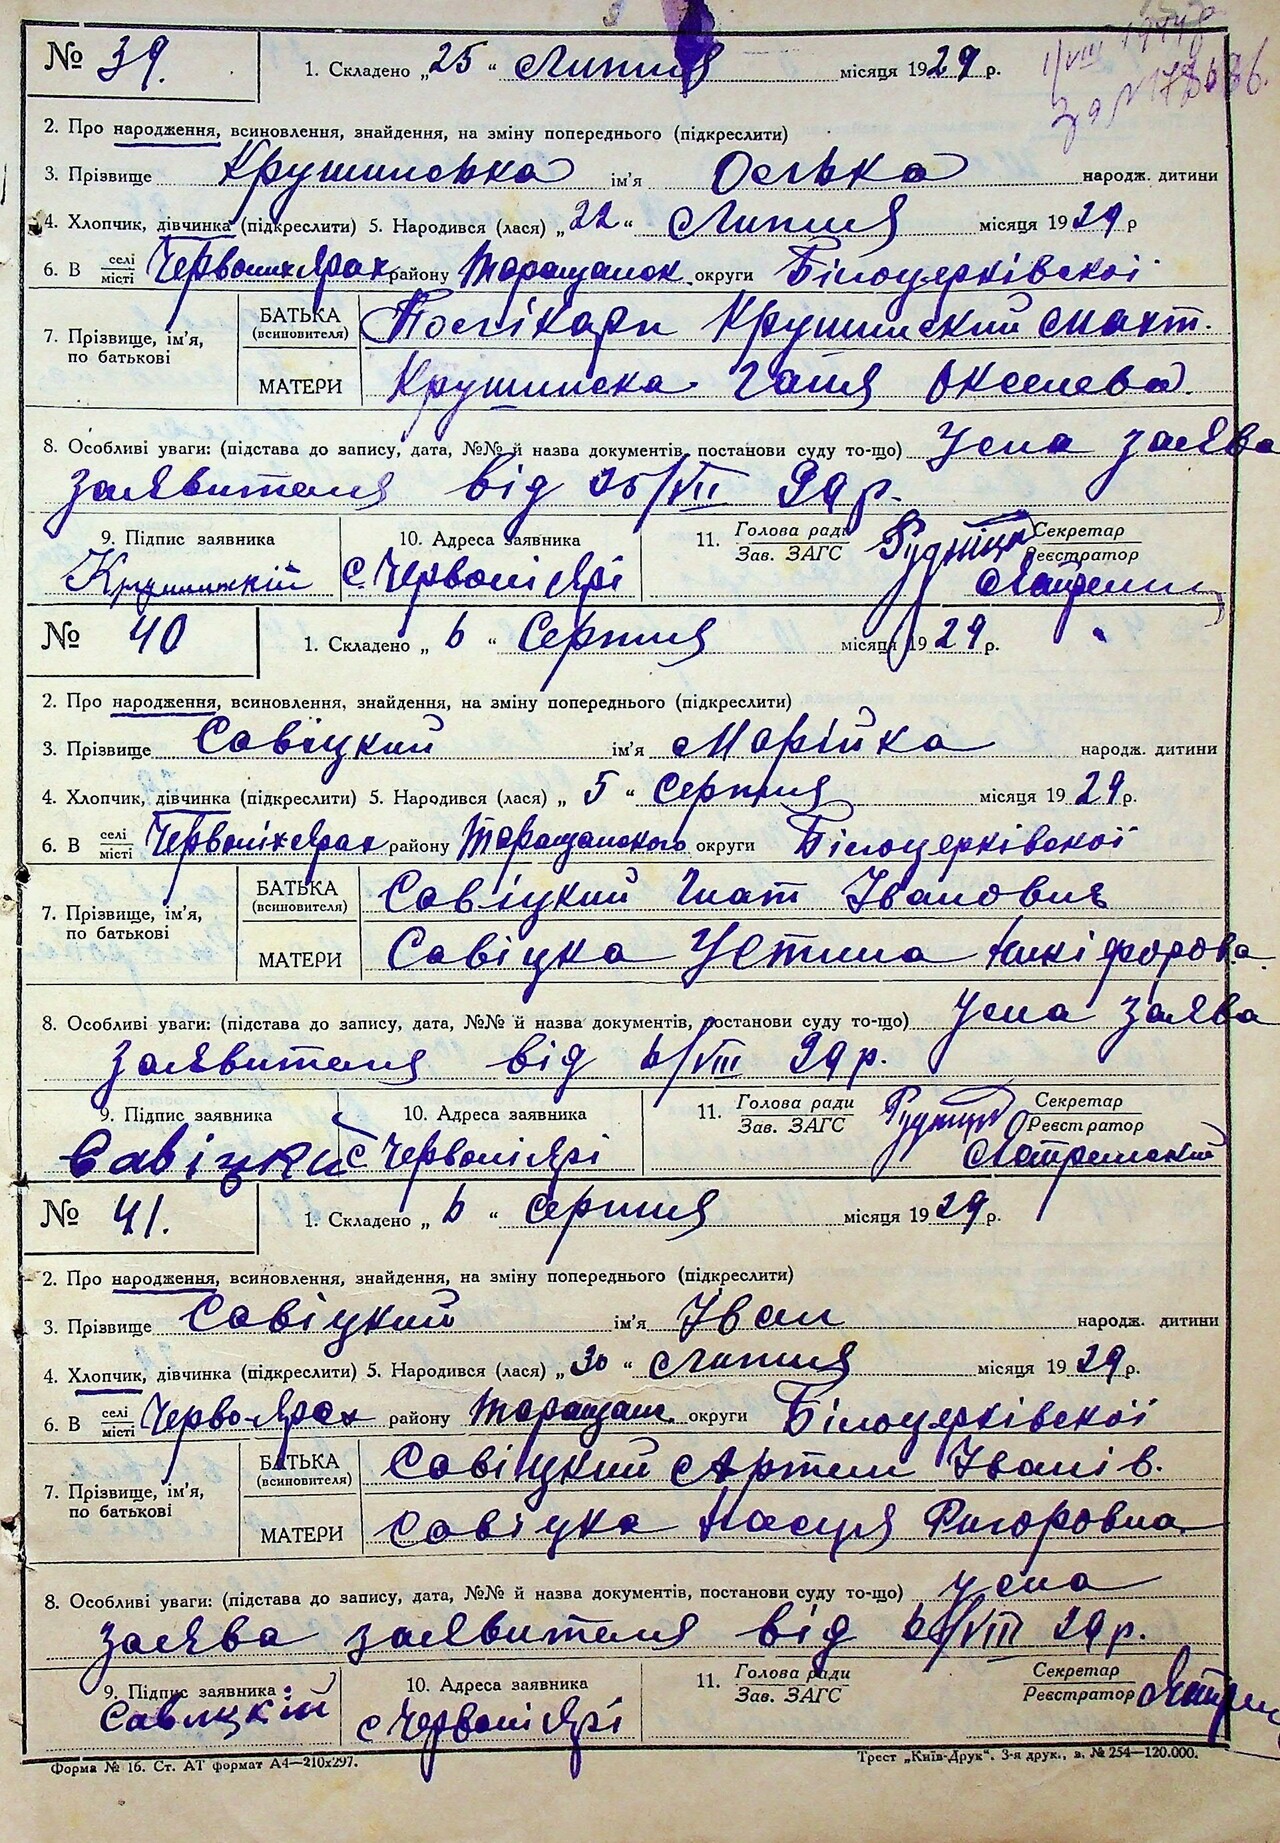 № 39. 1. Складено „25“ Липня місяця 1929 р.
2. Про народження, всиновлення, знайдення, на зміну попереднього (підкреслити)
3. Прізвище Крушинська ім'я Оська народж. дитини
4. Хлопчик, дівчинка (підкреслити) 5. Народився (лася) „22“ Липня місяця 1929 р
6. В селі місті Червоних Ярах району Таращанск. округи Білоцерківскої
7. Прізвище, ім'я, по батькові
БАТЬКА (всиновителя) Крушинский
МАТЕРИ Крушинска Ганя
8. Особливі уваги: (підстава до запису, дата, №№ й назва документів, постанови суду то-що) Усна заява
заявителя від 25/VII 29 р.
9. Підпис заявника 10. Адреса заявника 11. Голова ради Секретар
Зав. ЗАГС Реєстратор
с. Червоні Ярі
№ 40 1. Складено „6“ Серпня місяця 1929 р.
2. Про народження, всиновлення, знайдення, на зміну попереднього (підкреслити)
3. Прізвище Савіцкий ім'я Марійка народж. дитини
4. Хлопчик, дівчинка (підкреслити) 5. Народився (лася) „5“ Серпня місяця 1929 р.
6. В селі місті Червоніх Ярах району Таращанского округи Білоцерківскої
7. Прізвище, ім'я, по батькові
БАТЬКА (всиновителя) Савіцкий Гнат Іванович
МАТЕРИ Савіцка Устина Никіфорова
8. Особливі уваги: (підстава до запису, дата, №№ й назва документів, постанови суду то-що) Усна заява
заявителя від 6/VIII 29 р.
9. Підпис заявника 10. Адреса заявника 11. Голова ради Секретар
Зав. ЗАГС Реєстратор
Савіцкий с Червоні Ярі
№ 41. 1. Складено „6“ Серпня місяця 1929 р.
2. Про народження, всиновлення, знайдення, на зміну попереднього (підкреслити)
3. Прізвище Савіцкий ім'я Іван народж. дитини
4. Хлопчик, дівчинка (підкреслити) 5. Народився (лася) „30“ Липня місяця 1929 р.
6. В селі місті Черво-Ярах району Таращан. округи Білоцерківскої
7. Прізвище, ім'я, по батькові
БАТЬКА (всиновителя) Савіцкий Артем Іванів.
МАТЕРИ Савіцка Насця Григоровна
8. Особливі уваги: (підстава до запису, дата, №№ й назва документів, постанови суду то-що) Усна
заява заявителя від 6/VIII 29 р.
9. Підпис заявника 10. Адреса заявника 11. Голова ради Секретар
Зав. ЗАГС Реєстратор
Савицкій с Червоні Ярі
Форма № 16. Ст. АТ формат А4—210х297. Трест „Київ-Друк“. 3-я друк., з. № 254—120.000.